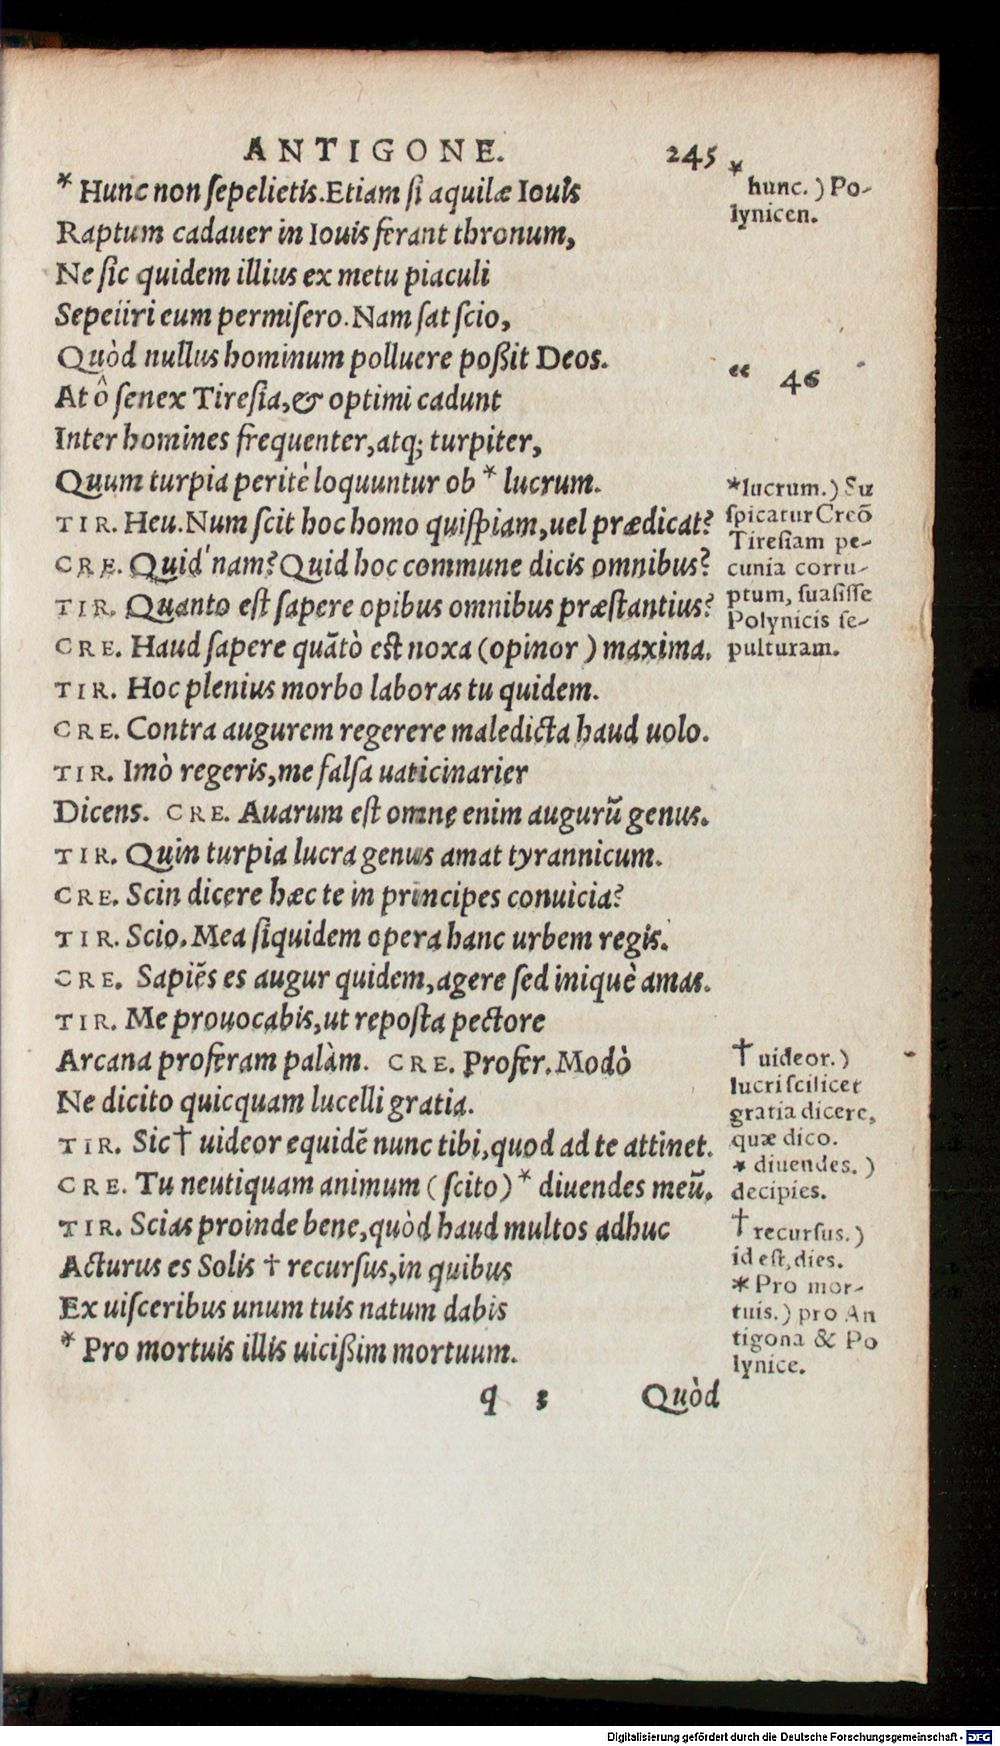 ANTIGONE. 245
* Hunc non sepelietis. Etiam si aquilæ Iouis
Raptum cadauer in Iouis ferant thronum,
Ne sic quidem illius ex metu piaculi
Sepeiiri eum permisero. Nam sat scio,
Quòd nullus hominum polluere poßit Deos.
At ô senex Tiresia, & optimi cadunt
Inter homines frequenter, atq; turpiter,
Quum turpia peritè loquuntur ob * lucrum.
TIR. Heu. Num scit hoc homo quispiam, uel prædicat?
CRE. Quid'nam? Quid hoc commune dicis omnibus?
TIR. Quanto est sapere opibus omnibus præstantius?
CRE. Haud sapere quātò est noxa (opinor) maxima.
TIR. Hoc plenius morbo laboras tu quidem.
CRE. Contra augurem regerere maledicta haud uolo.
TIR. Imò regeris, me falsa uaticinarier
Dicens. CRE. Auarum est omne enim augurū genus.
TIR. Quin turpia lucra genus amat tyrannicum.
CRE. Scin dicere hæc te in principes conuicia?
TIR. Scio. Mea siquidem opera hanc urbem regis.
CRE. Sapiēs es augur quidem, agere sed iniquè amas.
TIR. Me prouocabis, ut reposta pectore
Arcana proferam palàm. CRE. Profer. Modò
Ne dicito quicquam lucelli gratia.
TIR. Sic † uideor equidē nunc tibi, quod ad te attinet.
CRE. Tu neutiquam animum (scito) * diuendes meū.
TIR. Scias proinde bene, quòd haud multos adhuc
Acturus es Solis † recursus, in quibus
Ex uisceribus unum tuis natum dabis
* Pro mortuis illis uicißim mortuum.
q 3 Quòd
*
hunc.) Po-
lynicen.
“ 46
*lucrum.) Su
spicatur Creō
Tiresiam pe-
cunia corru-
ptum, suasisse
Polynicis se-
pulturam.
† uideor.)
lucri scilicet
gratia dicere,
quæ dico.
* diuendes.)
decipies.
† recursus.)
id est, dies.
* Pro mor-
tuis.) pro An
tigona & Po
lynice.
Digitalisierung gefördert durch die Deutsche Forschungsgemeinschaft - DFG